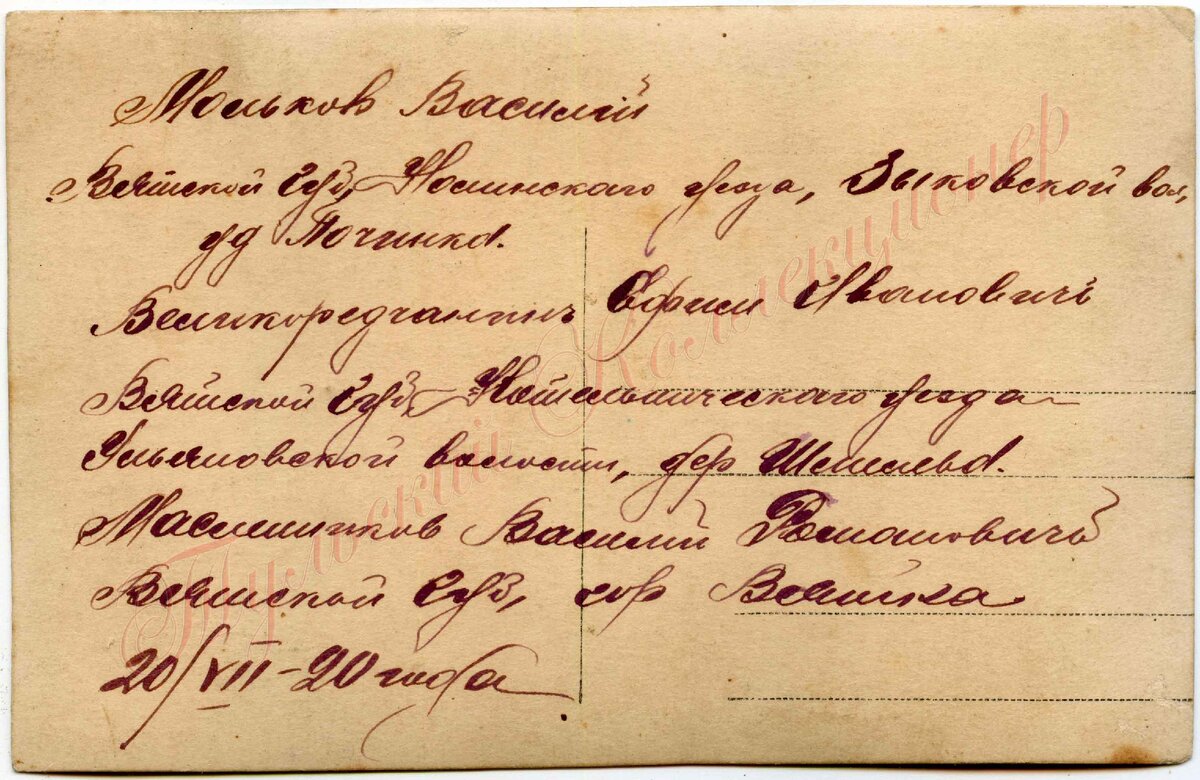 Мольков Василій
Вятской губ, Нолинскаго уезда, Зыковской вол,
уд Починка.
Великоредчанинъ Ефим Ивановичъ
Вятской губ, Котельническаго уезда
Ульяновской волости, дер
Масленников Василій Романовичъ
Вятской губ, гор Вятка
20/VII-20 года
Тульскій Коллекционер